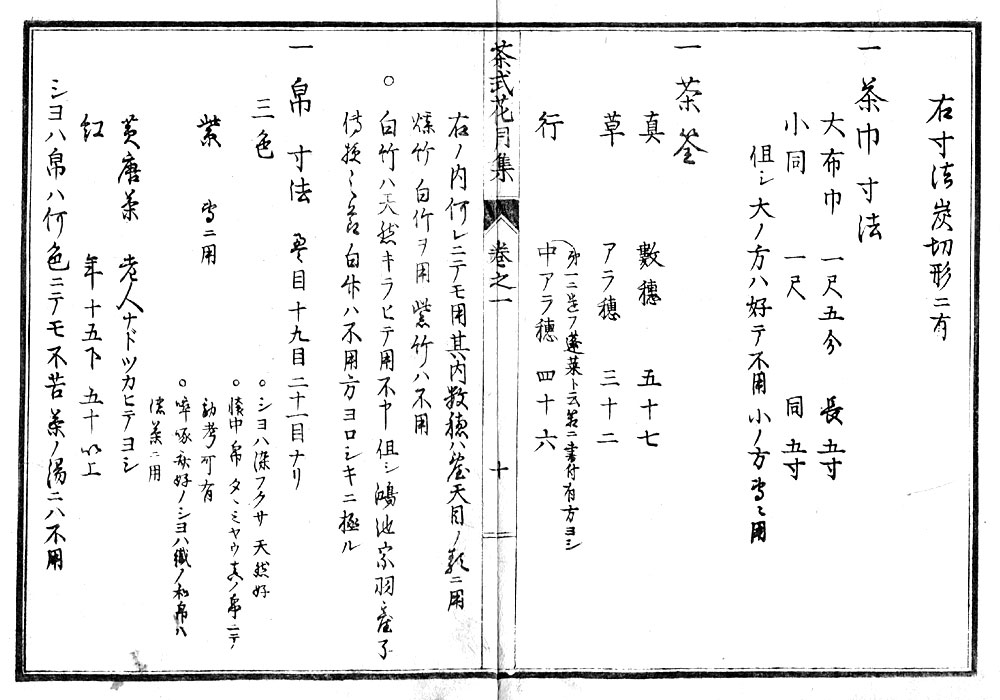 右寸法炭切形ニ有
一 茶巾寸法
大布巾 一尺五分 長五寸
小同 一尺 同五寸
但シ大ノ方ハ好テ不用小ノ方専ニ用
一 茶筌
真 數穂 五十七
草 アラ穂 三十二
行 中アラ穂 四十六
蓬莱ト云 書付有方ヨシ
茶式花月集 卷之一 十
右ノ内何レニテモ用其内数穂ハ 天目ノ類ニ用
煤竹白竹ヲ用紫竹ハ不用
○白竹ハ天然キラヒテ用不申但シ鴻池宗羽
白竹ハ不用方ヨロシキニ極ル
一 帛寸法 畳目十九目二十一目ナリ
三色
○シヨハ染フクサ天然好
紫 専ニ用
○懐中帛タヽミヤウ真ノ帛ニテノ
勘考可有
○啐啄斎好ノシヨハ織ノ和帛ハ
濃茶ニ用
黄唐茶 老人ナドツカヒテヨシ
紅 年十五下五十以上
シヨハ帛ハ何色ニテモ不苦茶ノ湯ニハ不用